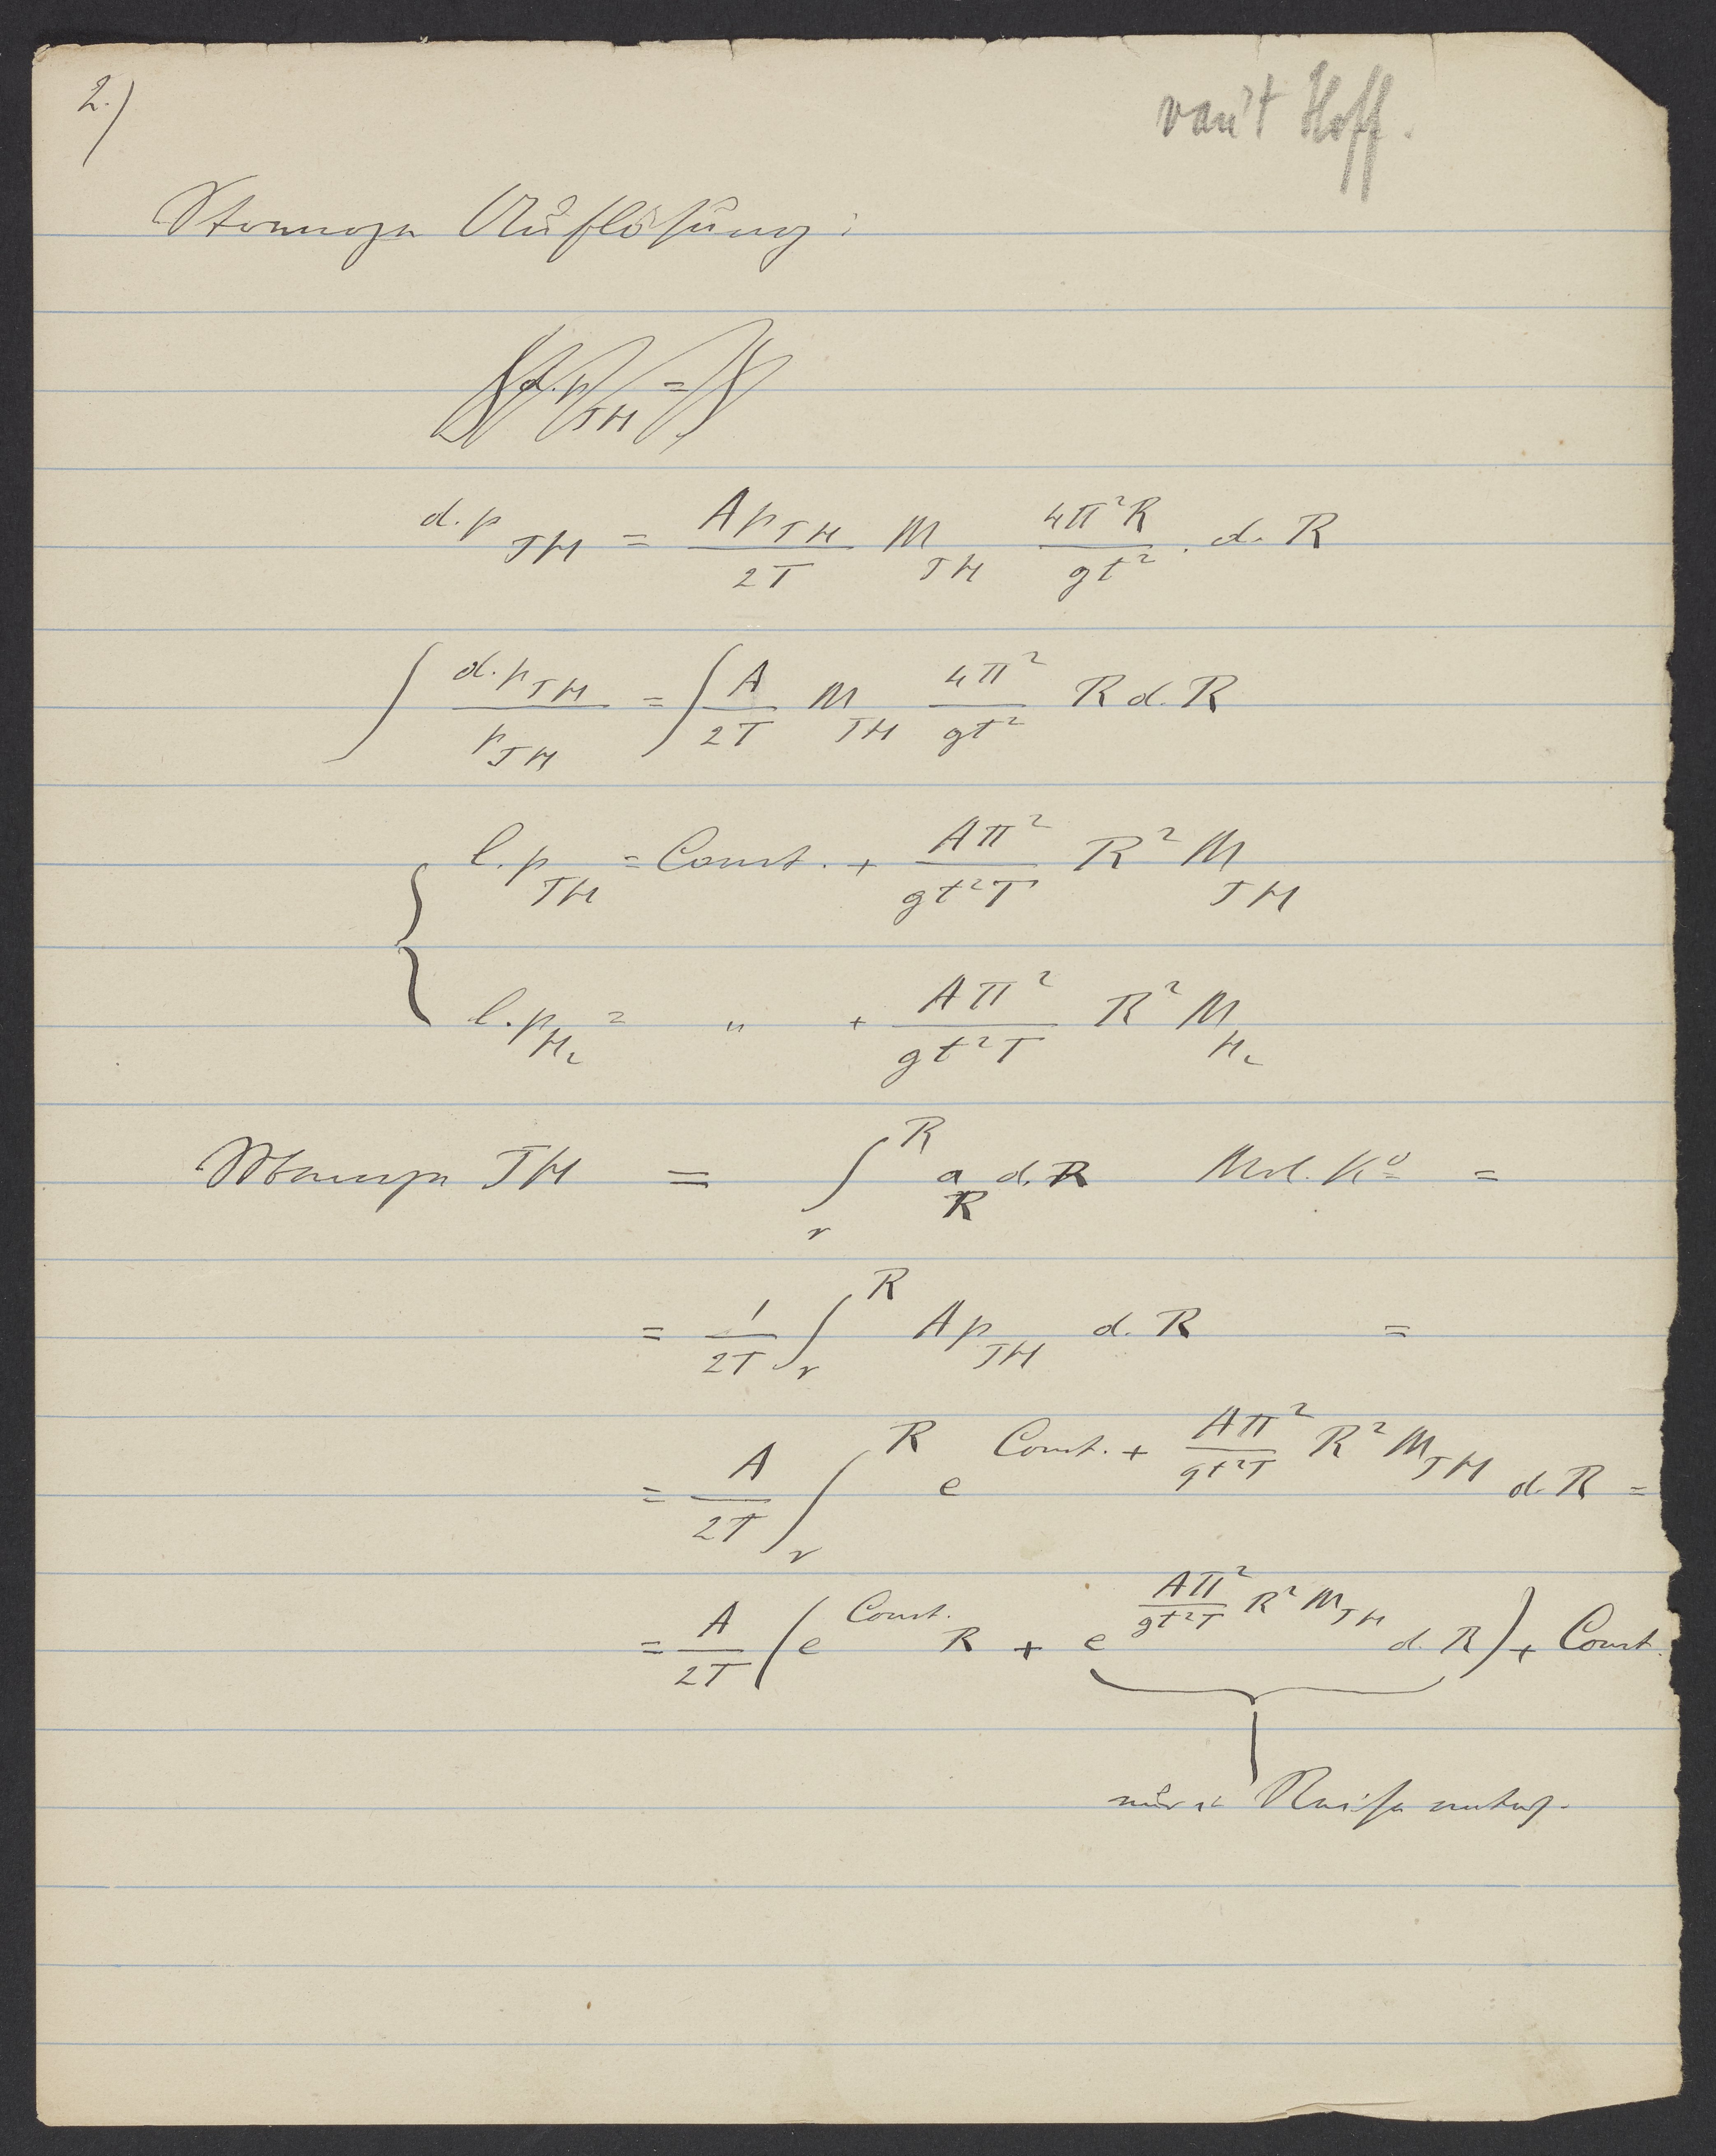 2.)
van't Hoff.
Strenge Auflösung:
d.p_{JH} =
d.p_{JH} = \frac{A p_{JH}}{2T} M_{JH} \frac{4π²R}{gt²} . d. R
∫ \frac{d.p_{JH}}{p_{JH}} = ∫ \frac{A}{2T} M_{JH} \frac{4π²}{gt²} R d. R
l.p_{JH} = Const. + \frac{Aπ²}{gt²T} R² M_{JH}
l.p_{H₂} = " + \frac{Aπ²}{gt²T} R² M_{H₂}
Menge JH = ∫_r^R a_R d. R Mol. K⁰ =
= \frac{1}{2T} ∫_r^R A p_{JH} d. R =
= \frac{A}{2T} ∫_r^R e^{Const. + \frac{Aπ²}{gt²T} R² M_{JH}} d. R =
= \frac{A}{2T} (e^{Const.} R + e^{\frac{Aπ²}{gt²T} R² M_{JH}} d. R) + Const.
Reihe